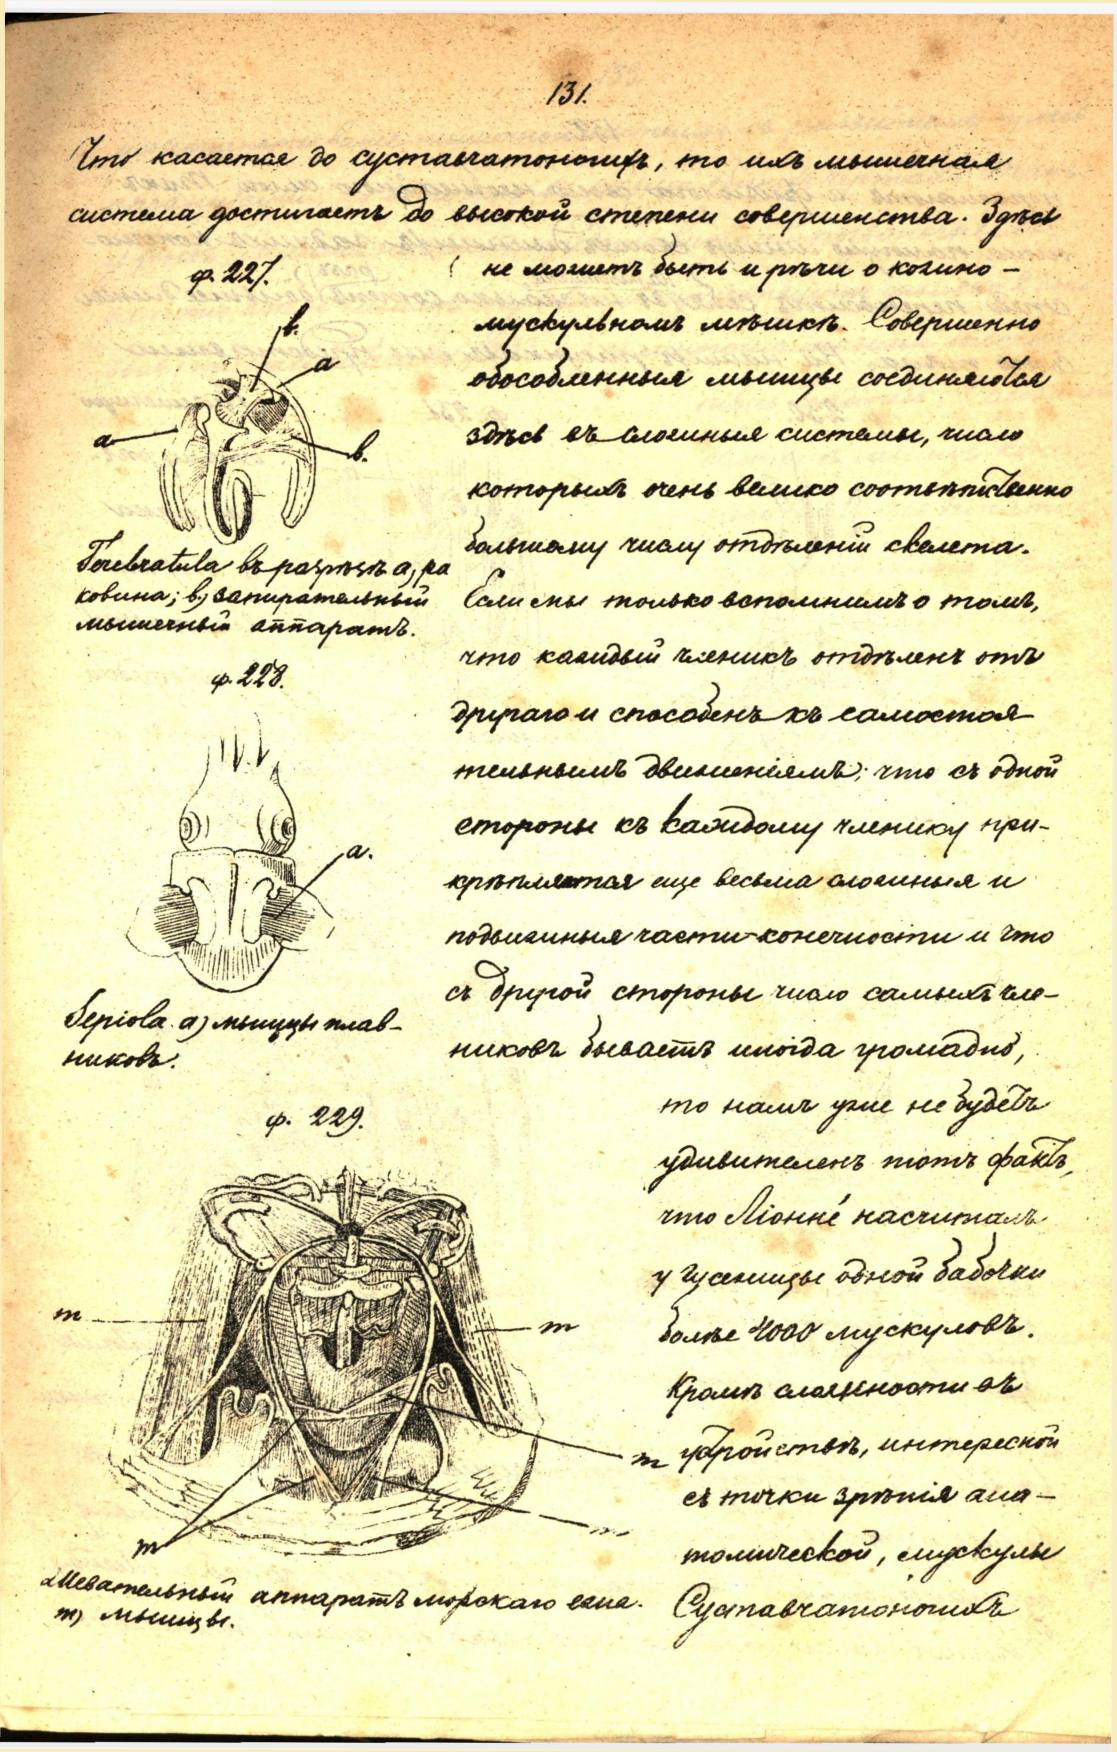 131.
Что касается до суставчатоногихъ, то ихъ мышечная
система достигаетъ до высокой степени совершенства. Здѣсь
ф. 227.
не можетъ быть и рѣчи о кожино-
мускульномъ мѣшкѣ. Совершенно
обособленныя мышцы соединяются
здѣсь въ сложныя системы, число
которыхъ очень велико соотвѣтственно
большему числу отдѣленій скелета.
Если мы только вспомнимъ о томъ,
что каждый членикъ отдѣленъ отъ
другаго и способенъ къ самостоя-
тельнымъ движеніямъ; что съ одной
стороны къ каждому членику при-
крѣпляются еще весьма сложныя и
подвижныя части-конечности и что
съ другой стороны число самыхъ чле-
никовъ бываетъ иногда громадно,
то намъ уже не будетъ
удивителенъ тотъ фактъ,
что Ліонне́ насчиталъ
у гусеницы одной бабочки
болѣе 4000 мускуловъ.
Кромѣ сложности въ
устройствѣ, интересной
съ точки зрѣнія ана-
томической, мускулы
Суставчатоногихъ
в.
а
а
в.
Terebratula въ разрѣзѣ а) ра
ковина; в) запирательный
мышечный аппаратъ.
ф. 228.
а.
Sepiola. а) мышцы плав-
никовъ.
ф. 229.
m
m
m
m
m
Жевательный аппаратъ морскаго ежа.
m) мышцы.